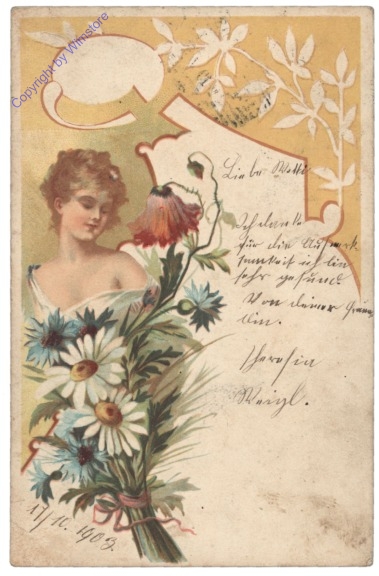 Copyright by Winstore
Liebe Betti
Ich danke
für die Aufmerk
samkeit ich bin
sehr gesund.
Von deiner
din.
Theresia
Weigl.
17/10. 1903.